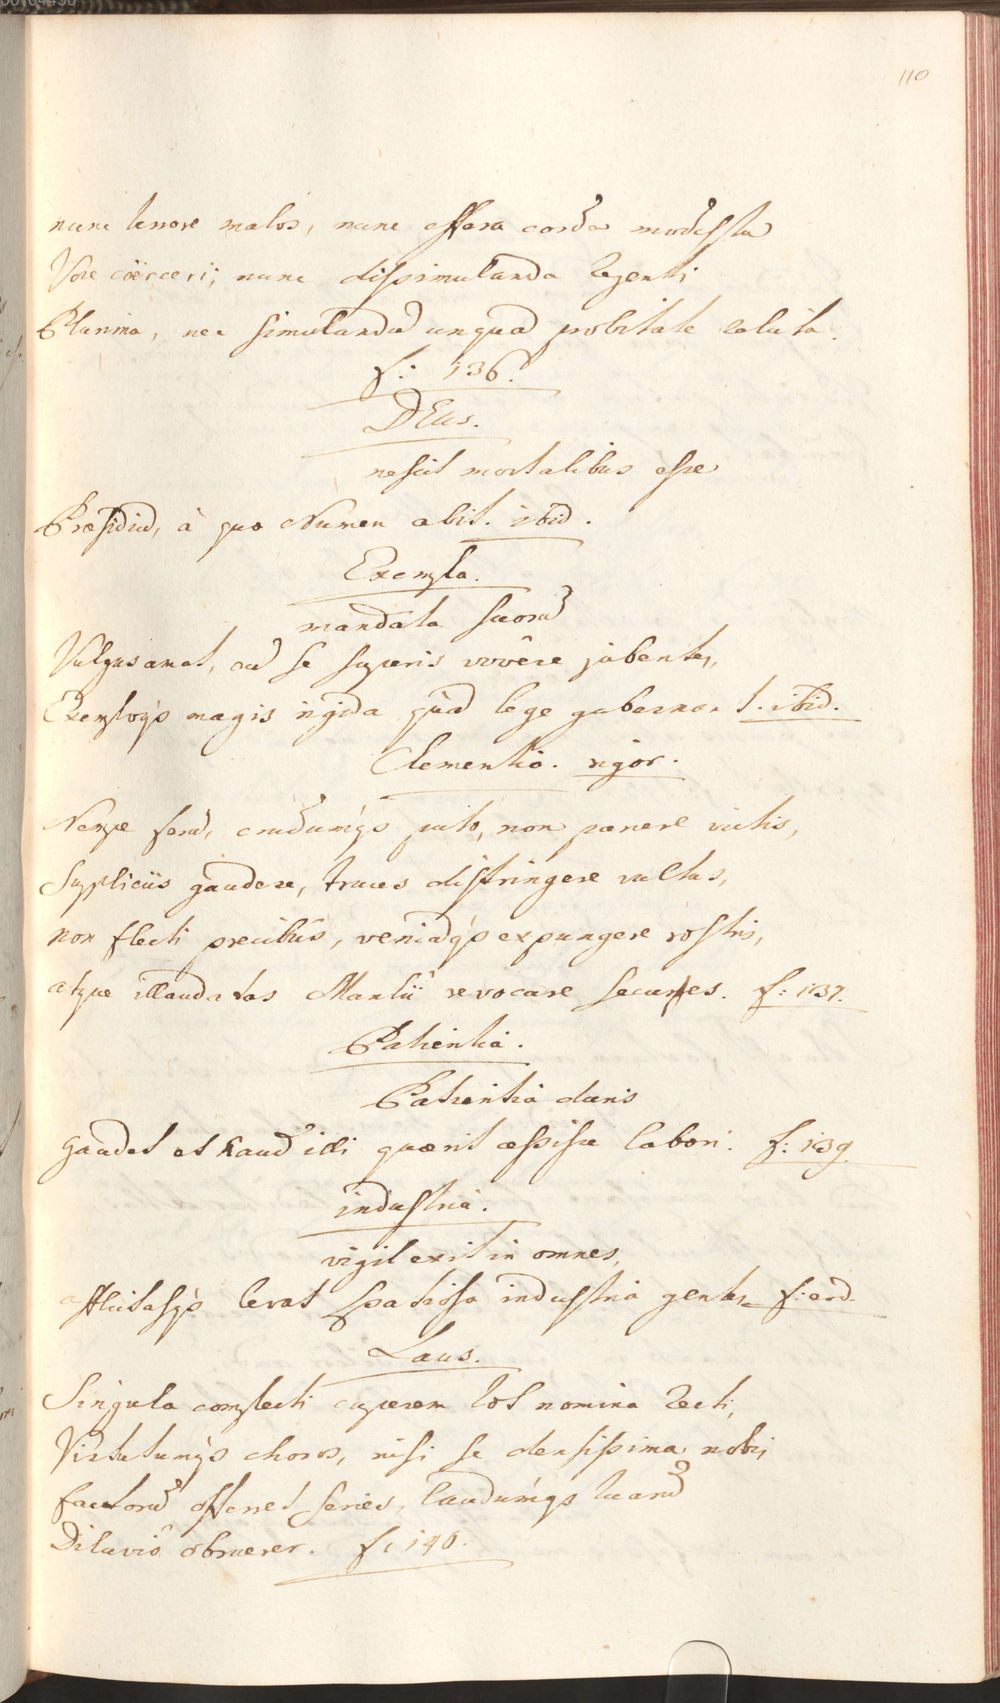 110
nunc terrore malos, nunc effera corda modesta
Voce coërceri; nunc dissimulanda regenti
Plurima, nec simulandũ unquã probitate relicta.
f: 136.
DEus.
nescit mortalibus esse
Præsidiũ, à quo Numen abit. ibid.
Exempla.
mandata suorũ
Vulgus amat, cũ se superis vovêre jubentes,
Exemploqꝫ magis rigida quã lege gubernant. ibid.
Clementia. rigor.
Nempe ferũ, crudumqꝫ puto, non parcere victis,
Suppliciis gaudere, truces distringere vultus,
non flecti precibûs, veniãqꝫ expungere rostris,
atque illaudatas Manlii revocare secures. f: 137.
Patientia.
Patientia duris
gaudet et haud illi quærit assistere labori. f: 139
industria.
vigil exit in omnes,
afflictasqꝫ levat spatiosa industria gentes f: eod.
Laus.
Singula complecti cuperem tot nomina recti,
Virtutumqꝫ choros, nisi se densissima nobis
factorũ offerret series, laudumqꝫ tuarũ
Diluviô obruerer. f: 140.